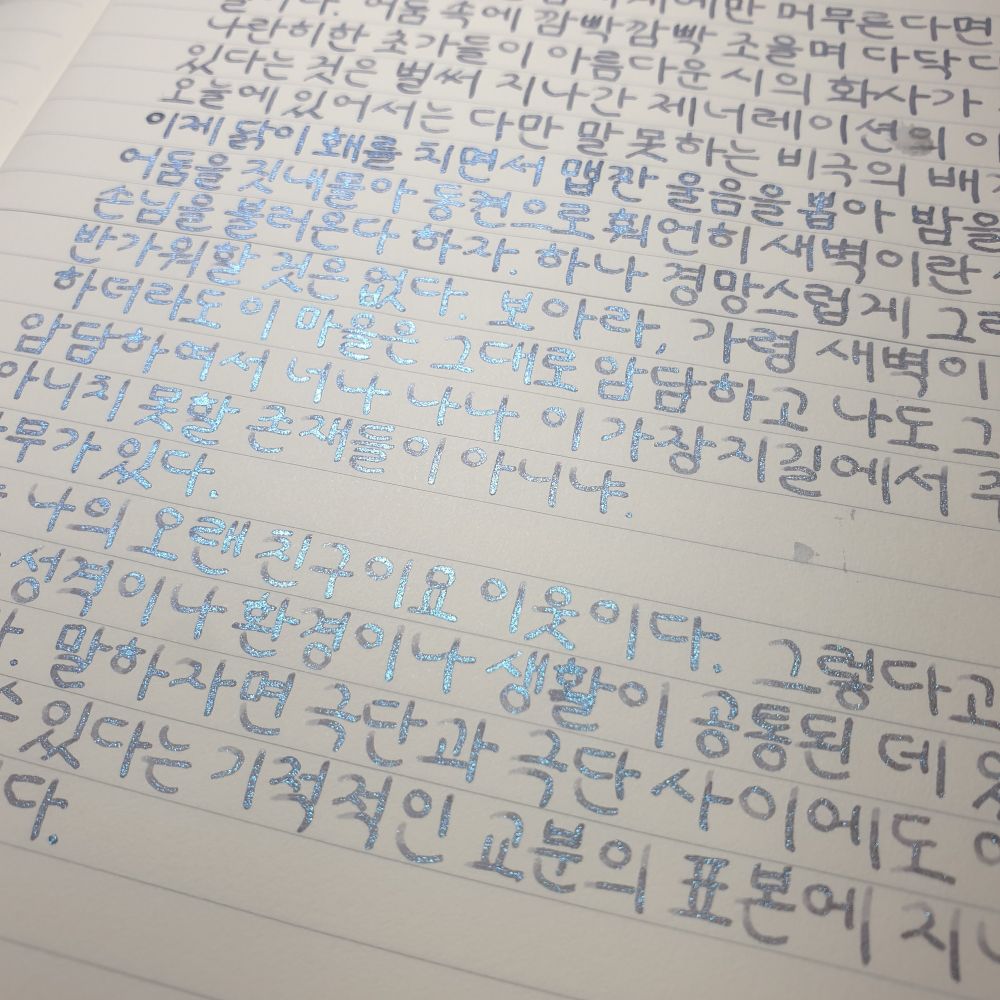 에만 머무른다면
다. 어둠 속에 깜빡깜빡 조을며 다닥다
나란히한 초가들이 아름다운 시의 화사가
있다는 것은 벌써 지나간 제너레이션의 이
오늘에 있어서는 다만 말 못하는 비극의 배
이제 닭이 홰를 치면서 맵짠 울음을 뽑아 밤을
어둠을 짓내몰아 동켠으로 훠언히 새벽이란
손님을 불러온다 하자. 하나 경망스럽게 그
반가워할 것은 없다. 보아라, 가령 새벽이
하더라도 이 마을은 그대로 암담하고 나도 그
암담하여서 너나 나나 이 가장지길에서 주
아니치 못할 존재들이 아니냐.
나무가 있다.
나의 오랜 친구이요 이웃이다. 그렇다고
성격이나 환경이나 생활이 공통된 데 있
. 말하자면 극단과 극단 사이에도
수 있다는 기적적인 교분의 표본에 지나
다.